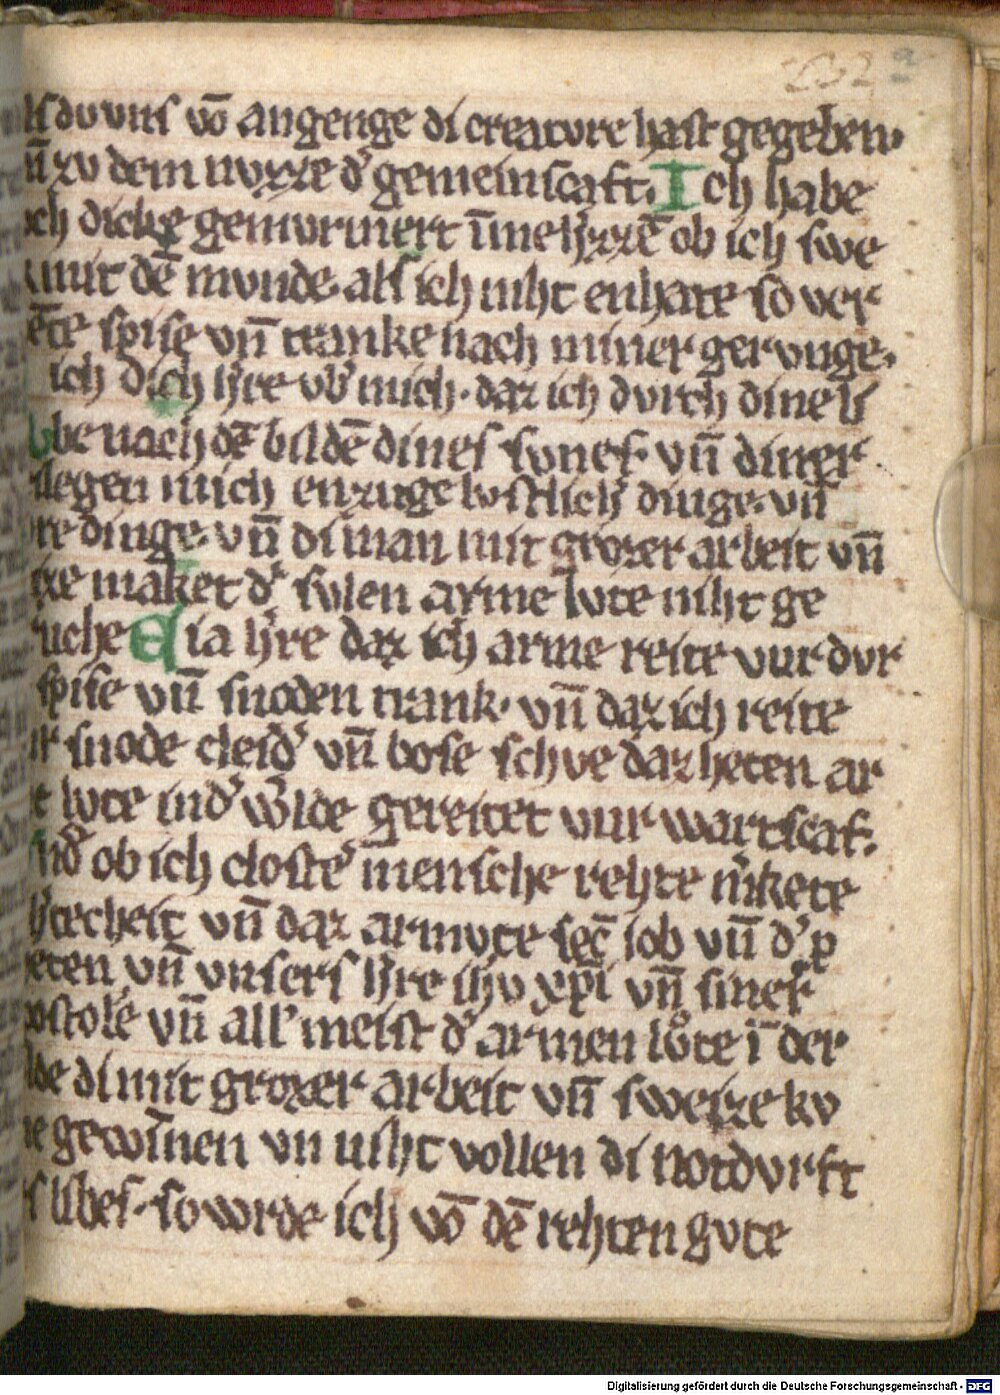 als du vns vō angenge di creatvre hast gegeben.
vn̄ zv dem nvzze d' gemeinscaft. Ich habe
och dicke gemvrmert īmeh'zzē ob ich swe
mit dē mvnde. als ich niht enhate so ver
spise vn̄ tranke nach miner gervnge.
ich dich h're vb' mich. daz ich dvrch dine li
be nach dē bildē dines svnes. vn̄ diner
legen mich enzuge kostlich' dinge. vn̄
re dinge. vn̄ di man mit grozer arbeit vn̄
maket d' svlen arme lvte niht ge
uche Eia h're daz ich arme reite vur dvr
spise vn̄ snoden trank. vn̄ daz ich reite
snode cleid' vn̄ bose schve daz heten ar
lvte in d' w'lde gereitet vur wartscaf.
vnd' ob ich closte' mensche rehte m'kete
h'techeit vn̄ daz armvte sēc iob vn̄ d' p
eten vn̄ vnsers h're ihv xpi vn̄ siner
postolē vn̄ all' meist d' armen lvͦte ī der
lde di mit grozer arbeit vn̄ sweize kv
ne gewīnen vn niht vollen di notdvrft
s libes. so wrde ich vō dē rehten gvte
Digitalisierung gefördert durch die Deutsche Forschungsgemeinschaft - DFG